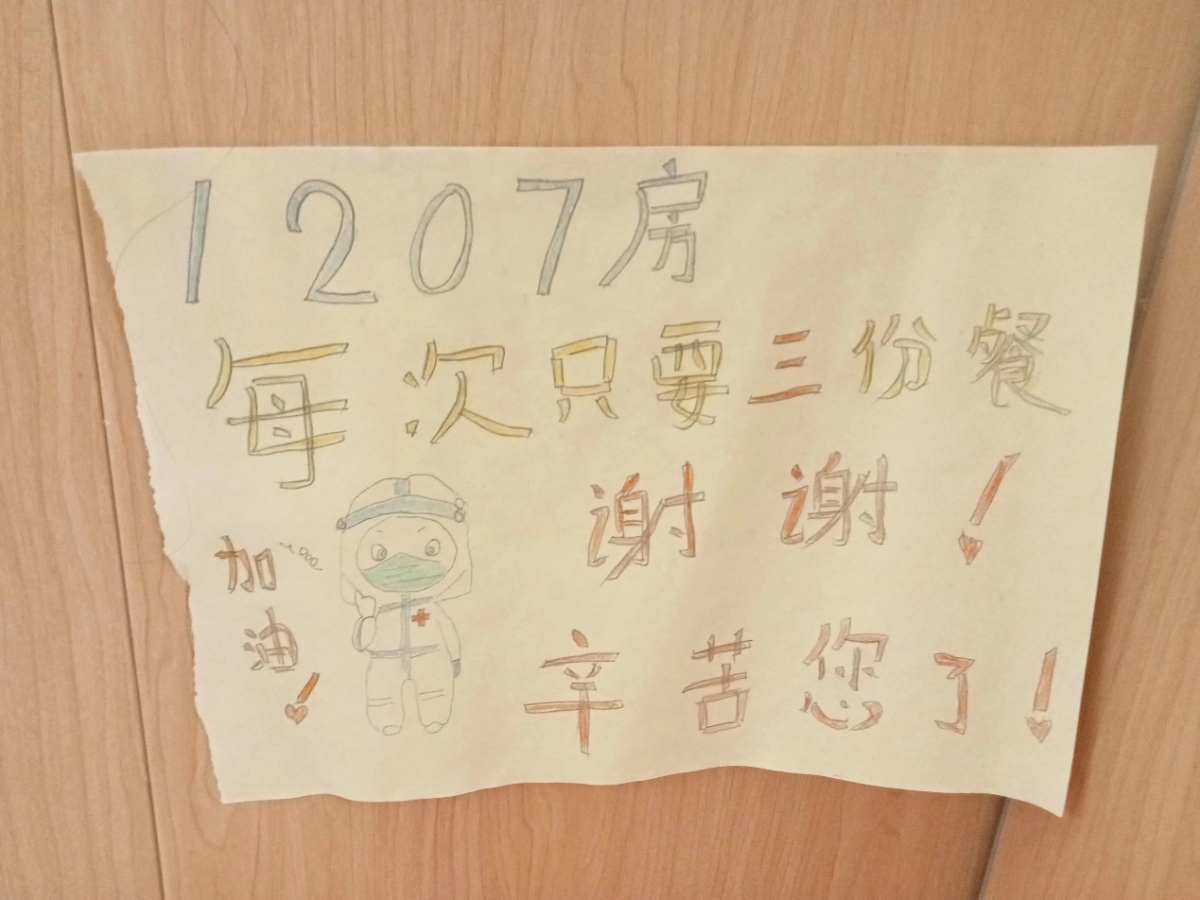 1207房
每次只要三份餐
谢谢!
辛苦您了!
加
油!